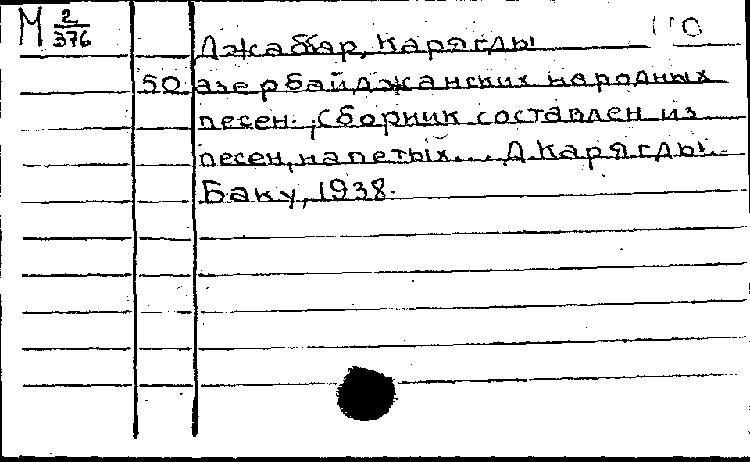 М 2/376
Джаббар, Карягды
50 азербайджанских народных
песен. ; Сборник составлен из
песен, напетых... Д. Карягды.
Баку, 1938.